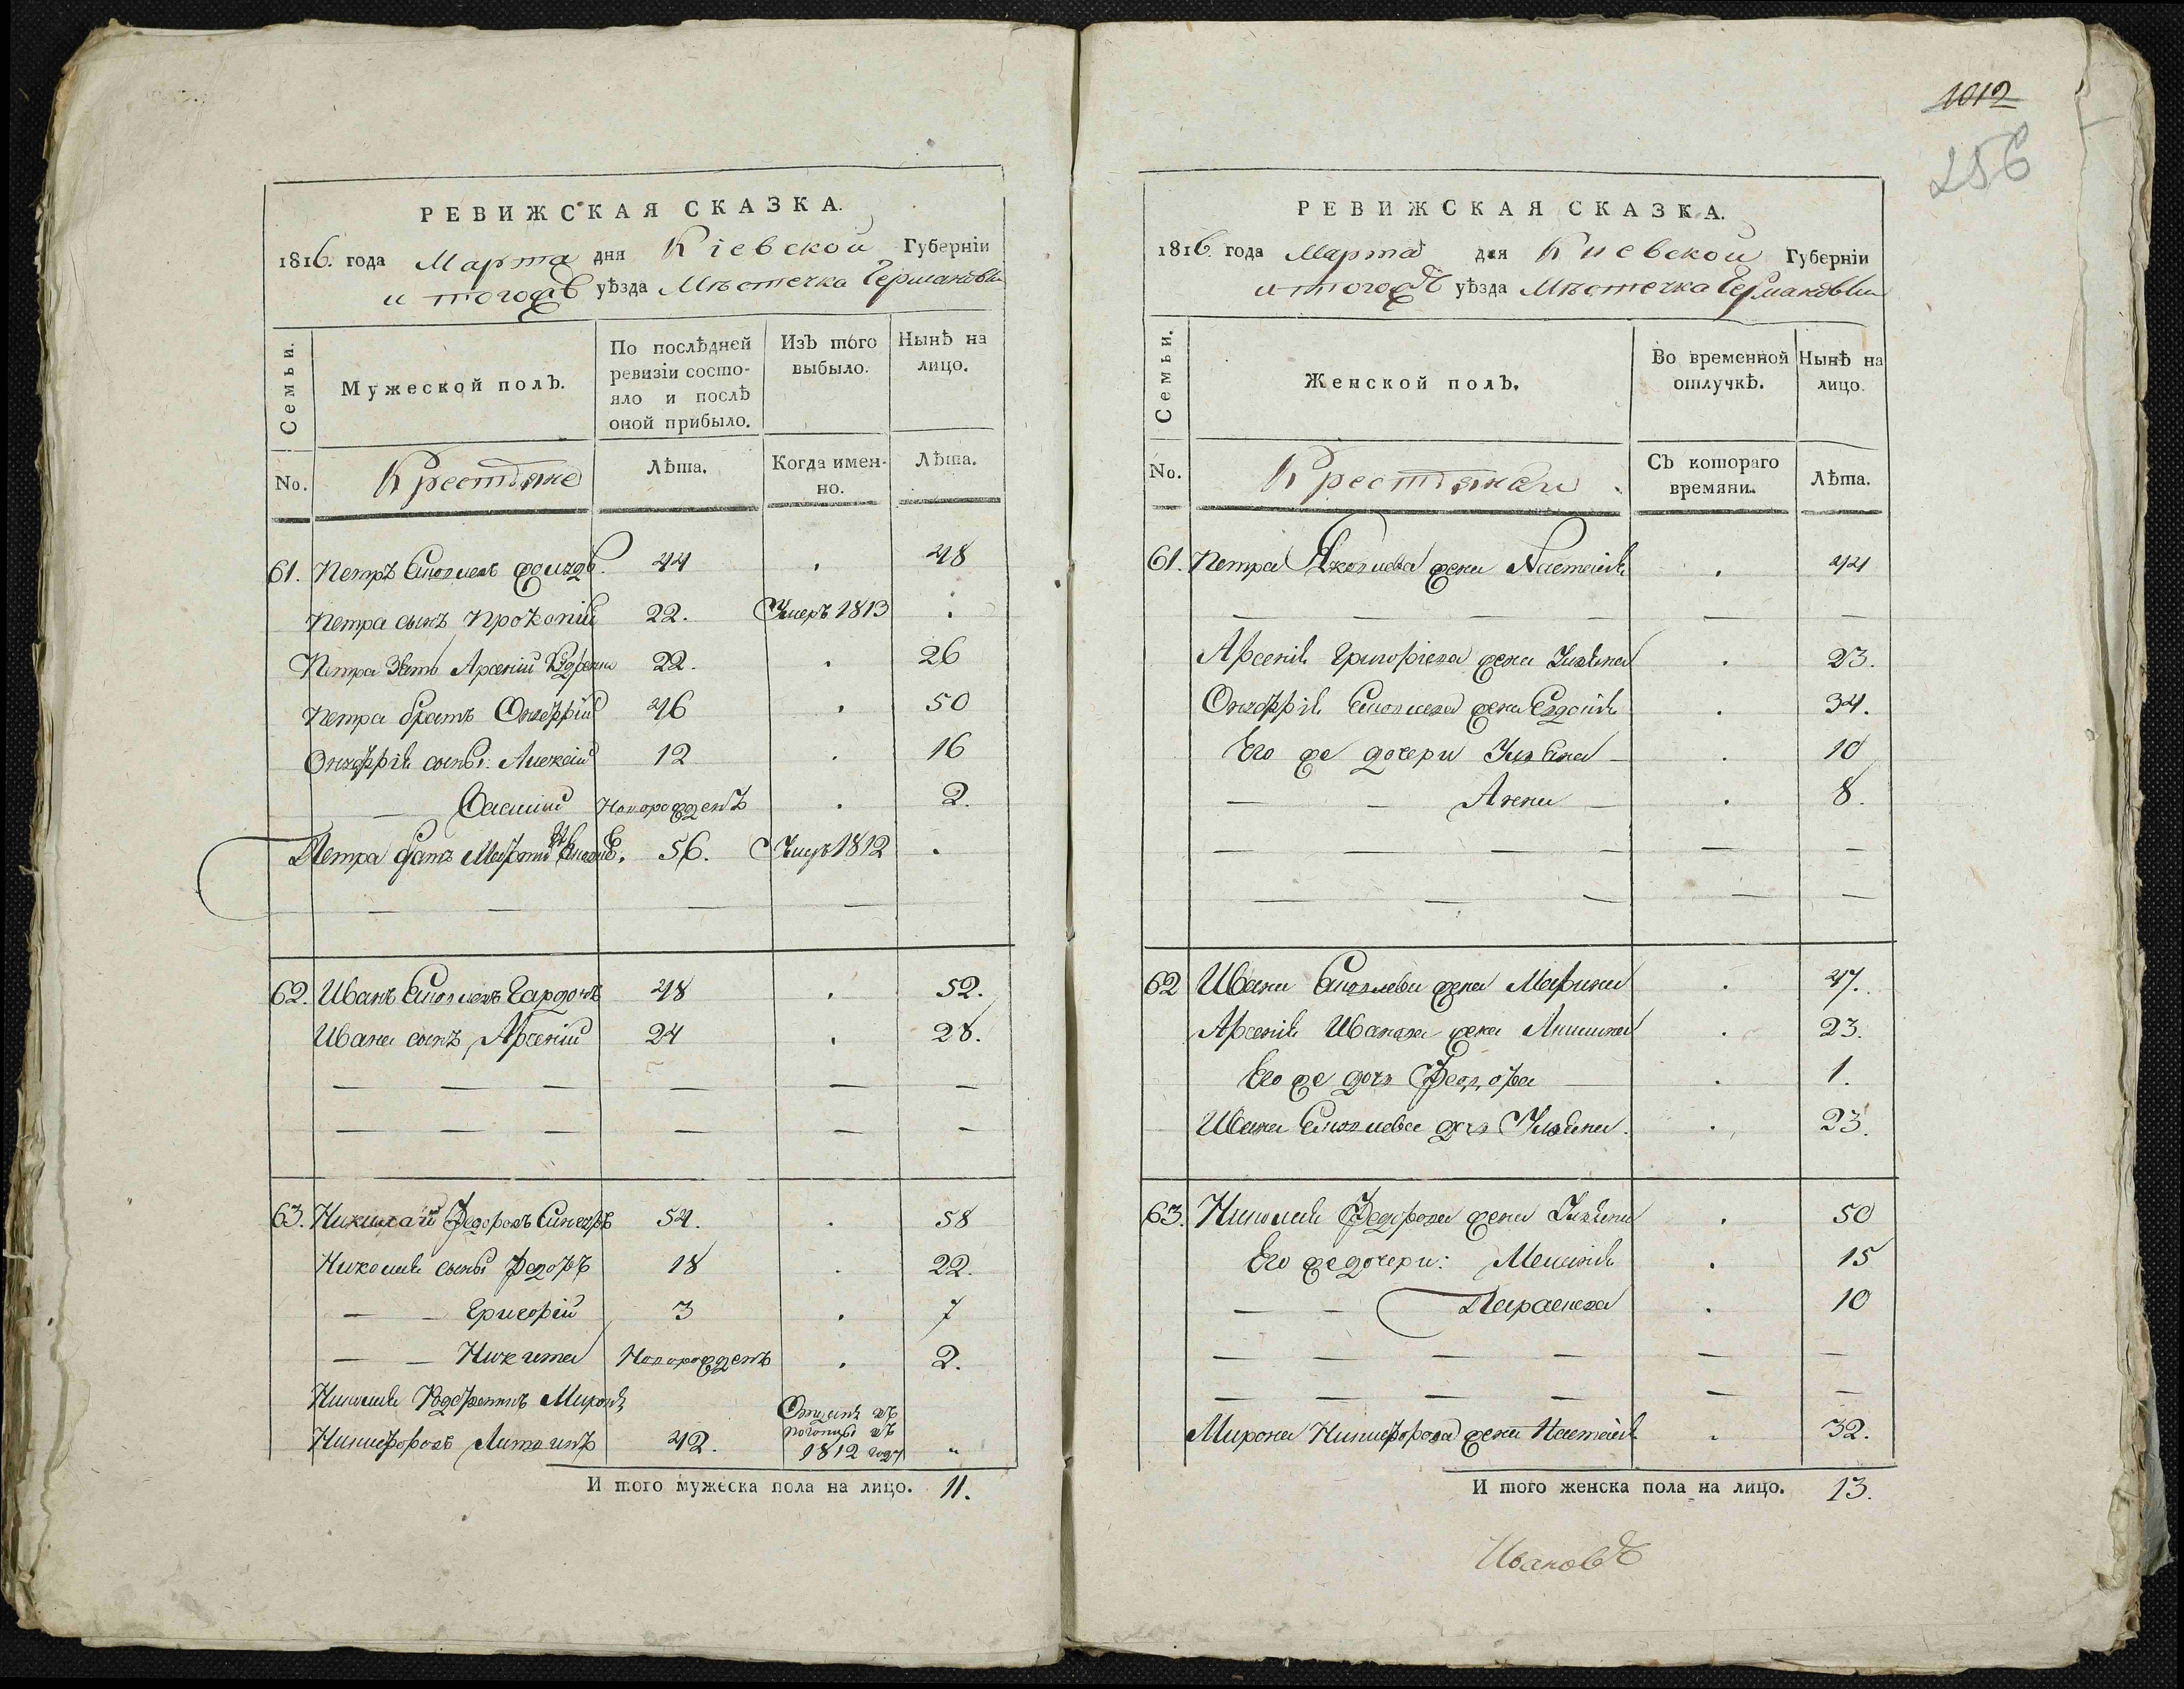 1012
256
РЕВИЖСКАЯ СКАЗКА.
1816. года Марта дня Кіевской Губерніи
и тогожъ уѣзда Мѣстечка Германовки
Семьи.
Мужеской полъ.
По послѣдней ревизіи состояло и послѣ оной прибыло.
Изъ того выбыло.
Нынѣ на лицо.
No.
Крестьяне
Лѣта.
Когда именно.
Лѣта.
61. Петръ 44 . 48
Петра сынъ Прокопій 22. Умеръ 1813 .
Петра Зять Арсеній 22. . 26
Петра братъ Онофрій 46 . 50
Онофрія сыны: Алексій 12 . 16
— Василій Новорожденъ . 2.
Петра братъ 56. Умеръ 1812 .
— — — —
62. Иванъ Гардонъ 48 . 52.
Ивана сынъ Арсеній 24 . 28.
— — — — — —
— — — — — —
63. Николай Федоровъ 54. . 58
Николая сыны Федоръ 18 . 22.
— — Григорій 3 . 7
— — Никита Новорожденъ . 2.
Николая Миронъ
Никифоровъ 42. Отданъ въ погонцы въ 1812 году "
И того мужеска пола на лицо. 11.
РЕВИЖСКАЯ СКАЗКА.
1816. года Марта дня Киевской Губерніи
и тогожъ уѣзда Мѣстечка Германовки
Семьи.
Женской полъ.
Во временной отлучкѣ.
Нынѣ на лицо.
No.
Крестьянки
Съ котораго времяни.
Лѣта.
61. Петра жена Настасія . 44
— — — — — —
Арсенія Григорьева жена Ульяна . 23.
Онофрія жена Евдокія . 34.
Его же дочери Ульяна — . 10
— — Анна — . 8.
— — — — — —
— — — — —
62 Ивана жена Марина . 47.
Арсенія Иванова жена . 23.
Его же дочь Федора — . 1.
Ивана дочь Ульяна. . 23.
63. Николая Федорова жена Ульяна . 50
Его же дочери: Меланія . 15
— — Параскева . 10
— — — — — —
— — — — — —
Мирона Никифорова жена Настасія . 32.
И того женска пола на лицо. 13.
Ивановъ